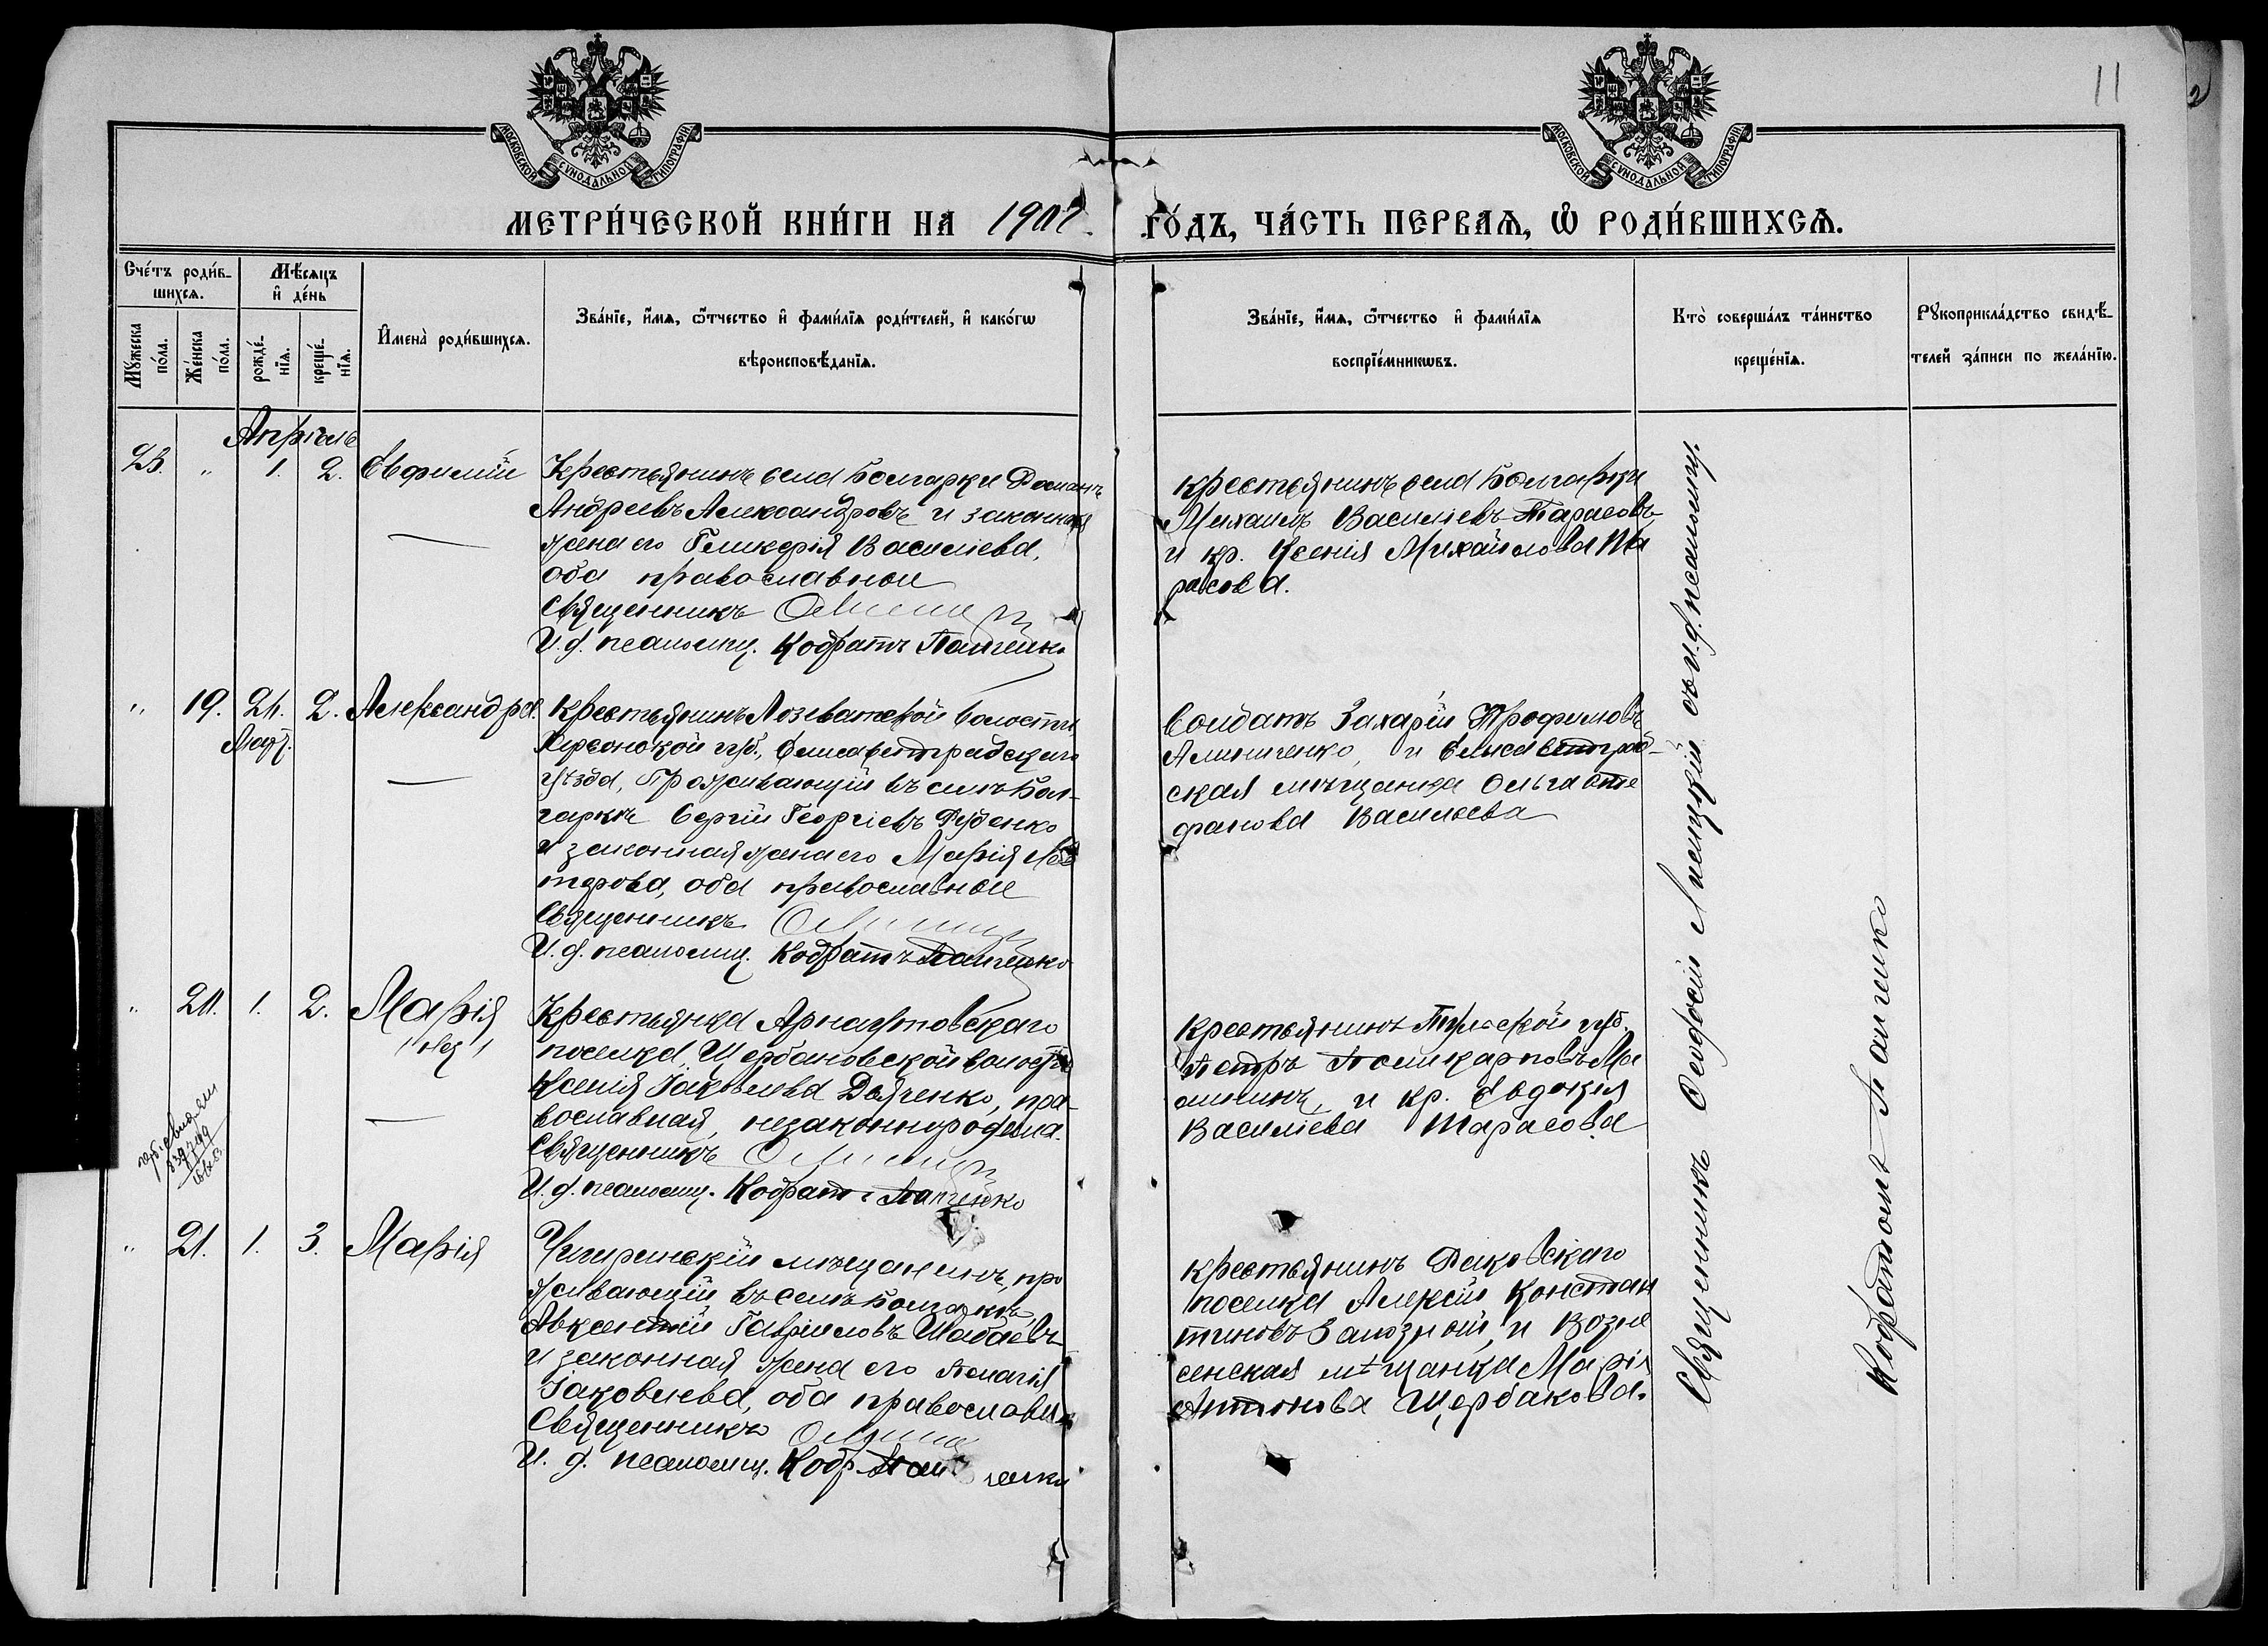 МОСКОВСКОЙ СѴНОДАЛЬНОЙ ТИПОГРАФІИ
МОСКОВСКОЙ СѴНОДАЛЬНОЙ ТИПОГРАФІИ
11
2
МЕТРИ́ЧЕСКОЙ КНИ́ГИ НА 190
ГО́ДЪ, ЧА́СТЬ ПЕРВАѦ, Ѡ҆ РОДИ́ВШИХСѦ.
Сче́тъ роди́в-
шихсѧ.
Мѣ́сѧцъ
и҆ де́нь
Мꙋ́жеска
по́ла.
Же́нска
по́ла.
рожде́-
нїѧ.
креще́-
нїѧ.
И҆мена̀ роди́вшихсѧ.
Зва́нїе, и҆́мѧ, ѻ҆́тчество и҆ фами́лїѧ роди́телей, и҆ како́гѡ
вѣроисповѣ́данїѧ.
Зва́нїе, и҆́мѧ, ѻ҆́тчество и҆ фами́лїѧ
воспрїе́мникѡвъ.
Кто̀ соверша́лъ та́инство
креще́нїѧ.
Рꙋкоприкла́дство свидѣ́-
телей за́писи по жела́нїю.
Апрѣль
23. " 1. 2. Евфимій
Крестьянинъ села Болгарки Романъ
Андреевъ Александровъ и законная
жена его Гликерія Василіева,
оба православные
Священникъ
И. д. псаломщ. Кодратъ Панченко
крестьянинъ села Болгарки
Михаилъ Василіевъ Тарасовъ
и кр. Ксенія Михайлова Та
расова.
" 19. 21. 2. Александра.
Март.
Крестьянинъ Лозоватской волости
Херсонской губ., Елисаветградскаго
уѣзда, Проживающій въ селѣ Бол-
гаркѣ Сергій Георгіевъ Руденко
и законная жена его Марія Не
терова, оба православные
Священникъ
И. д. псаломщ. Кодратъ Панченко
Солдатъ Захарій Трофимовъ
Алинченко, и Елисаветград-
ская мѣщанка Ольга Сте
фанова Василева
" 20. 1. 2. Марія
/ нез /
Крестьянка Арнаутовскаго
поселка, Щербановской волости
Ксенія Іаковлева Дьяченко, пра-
вославная, незаконнорожден.
Священникъ
И. д. псаломщ. Кодратъ Панченко
Крестьянинъ Тульской губ.
Петръ Поликарповъ Ма
линин, и кр. Евдокія
Василіева Тарасова
" 21. 1. 3. Марія
Чигиринскій мѣщанинъ, про
живающій въ селѣ Болгаркѣ,
Авксентій Гавриловъ Шабаевъ
и законная жена его Пелагія
Іаковлева, оба православн.
Священникъ
И. д. псаломщ. Кодр. Панченко
крестьянинъ Раковскаго
поселка Алексій Констан
тиновъ Залозный, и Возне
сенская мѣщанка Марія
Антонова Щербакова.
Священникъ Ѳеодосій Лисицкій съ и. д. псаломщ.
Кодратомъ Панченко